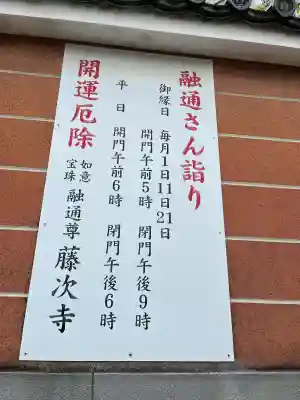 融通さん詣り
御縁日 毎月1日11日21日
開門午前5時 閉門午後9時
平日 開門午前6時 閉門午後6時
開運厄除
如意
宝珠
融通尊 藤次寺